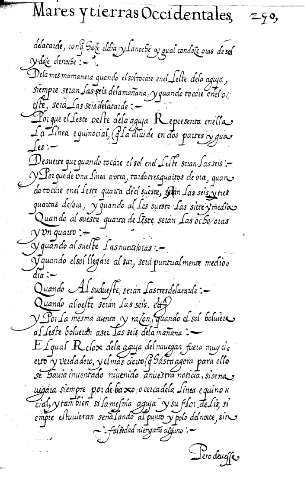 Mares y tierras Occidentales, 290,
dela tarde, con que haze el dia y La noche de ygual con doze oras de sol
y doze de noche :~
Dela mesma manera quando el sol tocare en el Leste dela aguja,
siempre seran Las seis dela mañana, y quando tocare en el o
este, seran Las seis dela tarde :~
Por que el Leste oeste dela aguja Representa en ella
La Linea equinocial, que La divide en dos partes ygua
Les :~
De suerte que quando tocare el sol en el Leste seran Las seis :~
Y Por que de una Linea a otra, tarda tres quartos de ora, quan
do tocare en el Leste quarta del sueste, seran Las seis y tres
quartas de ora, y quando al Les sueste Las siete y media
Quando al sueste quarta de Leste seran Las ocho oras
y vn quarto :~
y quando al sueste Las nueve oras :~
Y quando el sol llegare al sur, sera puntualmente medio
dia :~
Quando Al sudueste, seran Las tres dela tarde :~
Quando al oeste seran Las seis,
Y Por La misma cuenta y razon, quando el sol bolviere
al Leste bolveran a ser Las seis dela mañana :~
El qual Relox dela aguja del navegar, fuera muy ci
erto y verdadero, y el mas cierto que hasta agora para ello
se havia inventado ni venido a nuestra noticia, si se na
vegara siempre por debaxo, o cerca dela Linea equino
cial, y tan bien si la mesma aguja y su flor de Lis, si
empre estuvieran señalando al punto y polo del norte, sin
falsedad ninguna alguno :~
Pero de esse